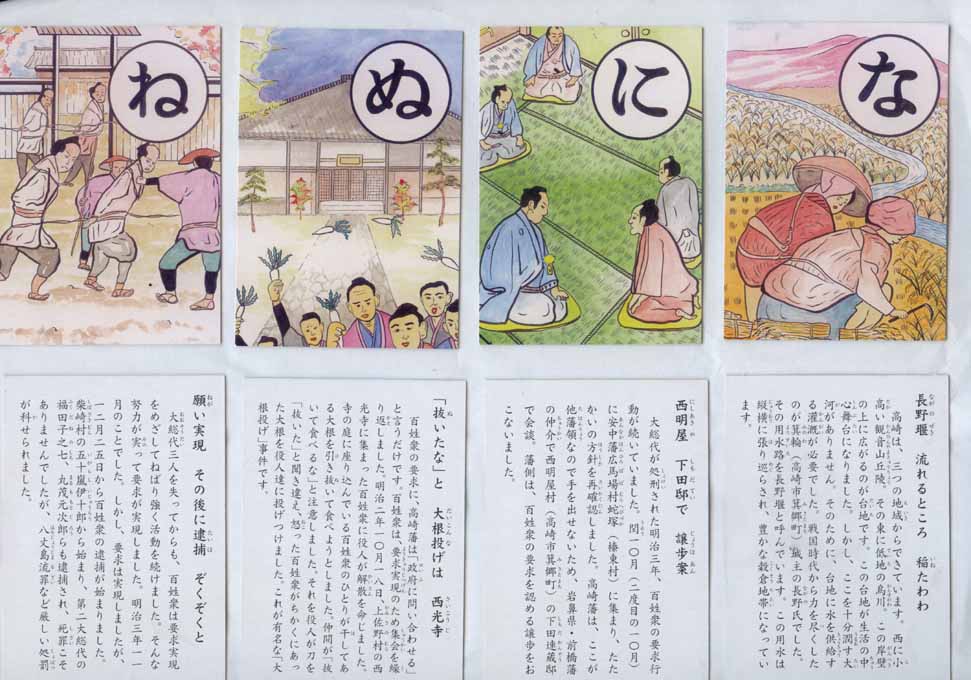 な
長野堰　流れるところ　稲たわわ
高崎は、三つの地域からできています。西に小
高い観音山丘陵。その東に低地の烏川。この岸壁
の上に広がるのが台地です。この台地が生活の中
心舞台になりました。しかし、ここを十分潤す大
河がありません。そのために、台地に水を供給す
る灌漑が必要でした。戦国時代から力を尽くした
のが箕輪（高崎市箕郷町）城主の長野氏でした。
その用水路を長野堰と呼んでいます。この用水は
縦横に張り巡らされ、豊かな穀倉地帯になってい
ます。
に
西明屋　下田邸で　譲歩案
大総代が処刑された明治三年、百姓衆の要求行
動が続いていました。閏一〇月（二度目の一〇月）
に安中藩広馬場村蛇塚（榛東村）に集まり、たた
かいの方針を再確認しました。高崎藩は、ここが
他藩領なので手を出せないため、岩鼻県・前橋藩
の仲介で西明屋村（高崎市箕郷町）の下田連蔵邸
で会談。藩側は、百姓衆の要求を認める譲歩をお
こないました。
ぬ
「抜いたな」と　大根投げは　西光寺
百姓衆の要求に、高崎藩は「政府に問い合わせる」
と言うだけです。百姓衆は、要求実現のため集会を繰
り返しました。明治二年一〇月一八日、上佐野村の西
光寺に集まった百姓衆に役人が解散を命じました。
寺の庭に座り込んでいる百姓衆のひとりが干してあ
る大根を引き抜いて食べようとしました。仲間が「抜
いて食べるな」と注意しました。それを役人が刀を
「抜った」と聞き違え、怒った百姓衆がちかくにあっ
た大根を役人達に投げつけました。これが有名な「大
根投げ」事件です。
ね
願い実現　その後に逮捕　ぞくぞくと
大総代三人を失ってからも、百姓衆は要求実現
をめざしてねばり強く活動を続けました。そんな
努力が実って要求が実現しました。明治三年一一
月のことでした。しかし、要求は実現しましたが、
一二月二五日から百姓衆の逮捕が始まりました。
柴崎村の五十嵐伊十郎から始まり、第二大総代の
福田子之七、丸茂元次郎らも逮捕され、死罪こそ
ありませんでしたが、八丈島流罪など厳しい処罰
が科せられました。